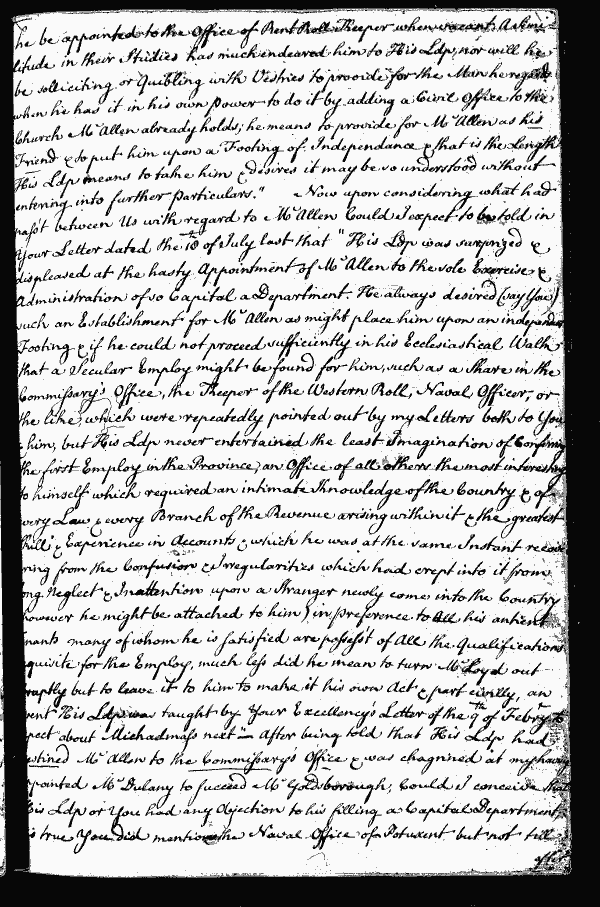 he be appointed to the Office of Rent Roll Keeper when vacant. A Simi-
litude in their Studies has much endeared him to His Ldp, nor will he
be solliciting or Quibling with Vestries to provide for the Man he regards
when he has it in his own power to do it by adding a Civil Office to the
Church Mr. Allen already holds; he means to provide for Mr. Allen as his
Friend & to put him upon a Footing of Independance & that is the Length
His Ldp means to take him & desires it may be so understood without
entering into further particulars." Now upon considering what had
pass't between Us with regard to Mr. Allen Could I expect to be told in
Your Letter dated the of July last that "His Ldp was surprized &
displeased at the hasty Appointment of Mr. Allen to the sole Exercise &
Administration of so Capital a Department. He always desired (say You)
such an Establishment for Mr. Allen as might place him upon an independent
Footing & if he could not proceed sufficiently in his Ecclesiastical Walk
that a Secular Employ might be found for him, such as a Share in the
Commissary's Office, the Keeper of the Western Roll, Naval Officer, or
the like, which were repeatedly pointed out by my Letters both to You
& him, but His Ldp never entertained the least Imagination of Conferring
the first Employ in the Province, an Office of all others the most interesting
to himself which required an intimate Knowledge of the Country & of
every Law & every Branch of the Revenue arising within it & the greatest
Skill & Experience in Accounts & which he was at the same Instant recov-
ring from the Confusion & Irregularities which had crept into it from
long Neglect & Inattention upon a Stranger newly come into the Country
(however he might be attached to him) in preference to All his antient
many of whom he is satisfied are possess't of All the Qualifications
requisite for the Employ, much less did he mean to turn Mr. Loyd out
abruptly but to leave it to him to make it his own Act & part civilly, an
Event His Ldp was taught by Your Excellency's Letter of the 9th of Febry. to
expect about Michaelmass next" — After being told that His Ldp had
destined Mr. Allen to the Commissary's Office & was chagrined at my having
appointed Mr. Dulany to succeed Mr. Goldsborough, Could I conceive that
His Ldp or You had any Objection to his filling a Capital Department,
is true You did mention the Naval Office of Potuxent but not till
after